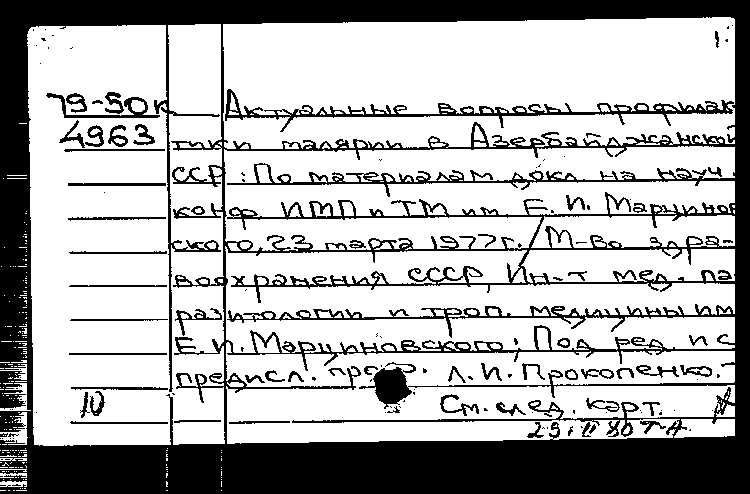 1.
79-50к Актуальные вопросы профилак
4963 тики малярии в Азербайджанской
ССР: По материалам докл. на науч.
конф. ИМП и ТМ им. Е. И. Марцинов
ского, 23 марта 1977 г. / М-во здра-
воохранения СССР, Ин-т мед. па
разитологии и троп. медицины им
Е. И. Марциновского; Под ред. и с
предисл. проф. Л. И. Прокопенко. -
10 См. след. карт.
29. II 80 Т-А